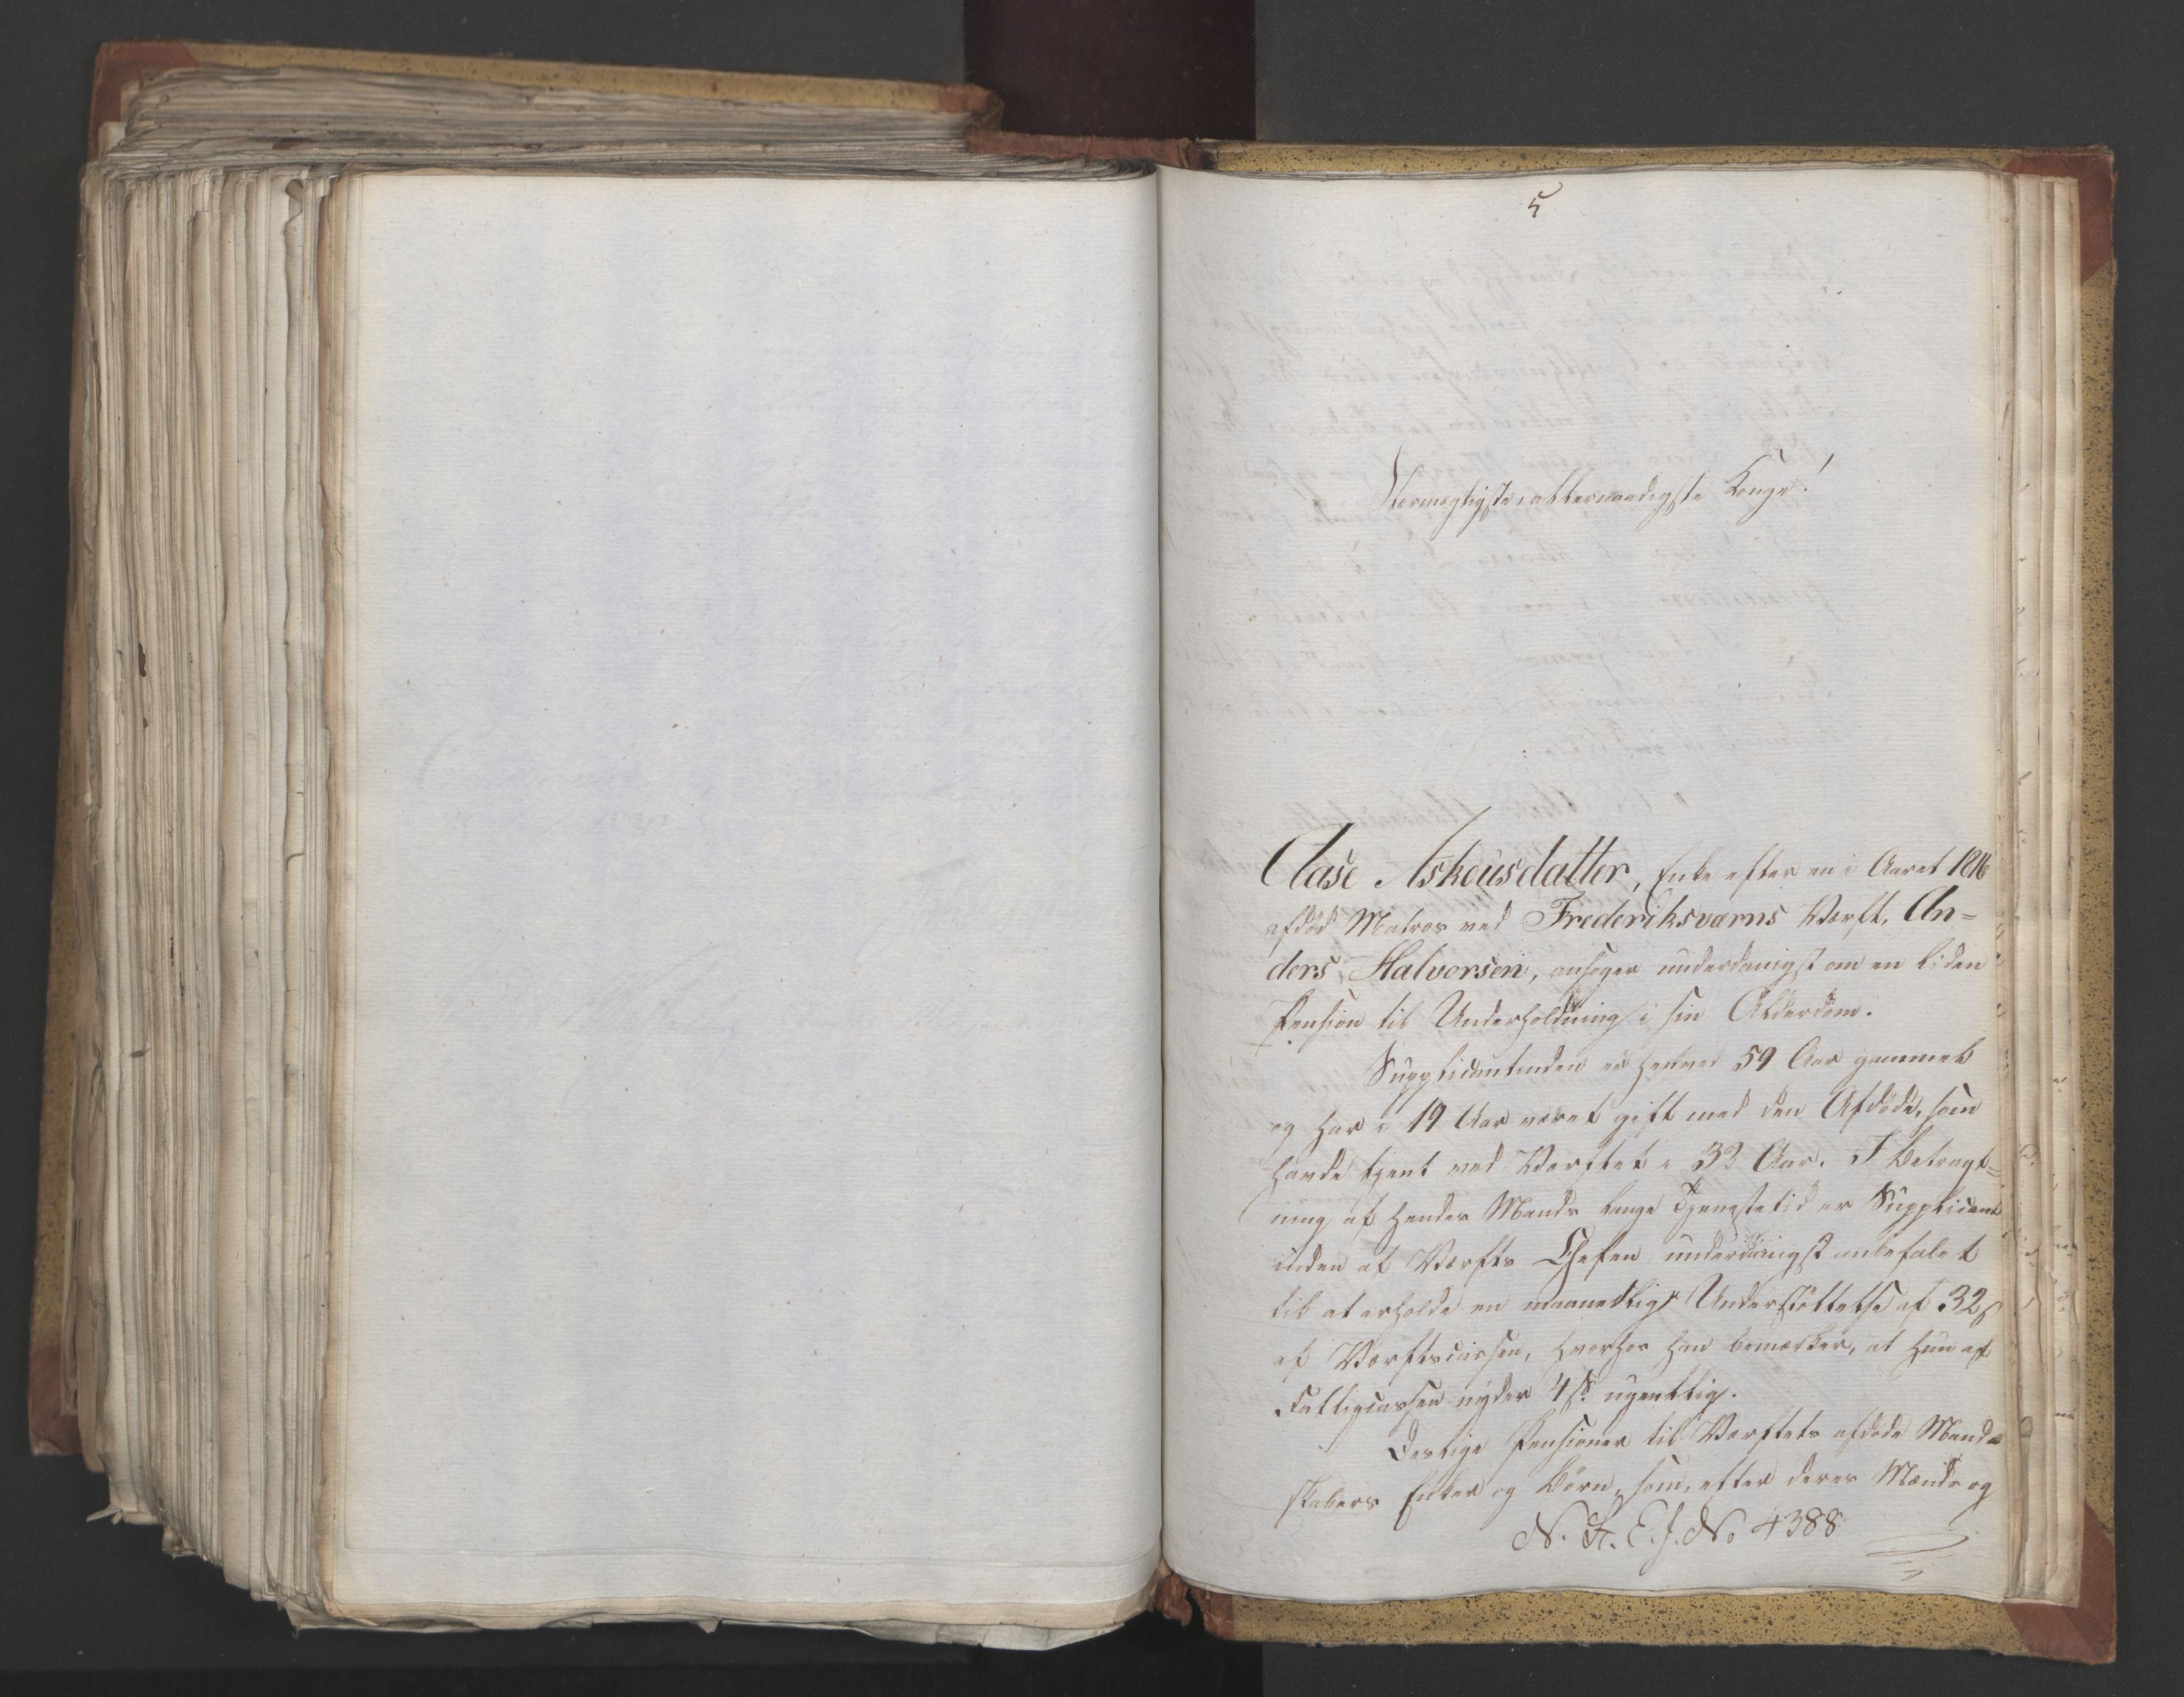 5
Stormægtigste, allernaadigste Konge!
Aase Askeusdatter, Enke efter en i Aaret 1816
afdød Matros ved Frederiksværns Værft, An=
ders Halvorsen, ansøger underdanigst om en liden
Pension til Underholdning i sin Alderdom.
Supplicantinden er henved 59 Aar gammel
og har i 19 Aar været gift med den Afdøde, som
havde tjent ved Værftet i 32 Aar. I Betragt=
ning af hendes Mands lange Tjenestetid er Supplicant
inden af Værfts Chefen underdanigst anbefalet
til at erholde en maanedlig Understøttelse af 32 s
af Værftscassen, hvorhos han bemærker, at hun af
Fattigcassen nyder 4 s. ugentlig.
Deslige Pensioner til Værftets afdøde Mand=
skabers Enker og Børn, som, efter deres Mænds og
N. K. E. J. No 4388